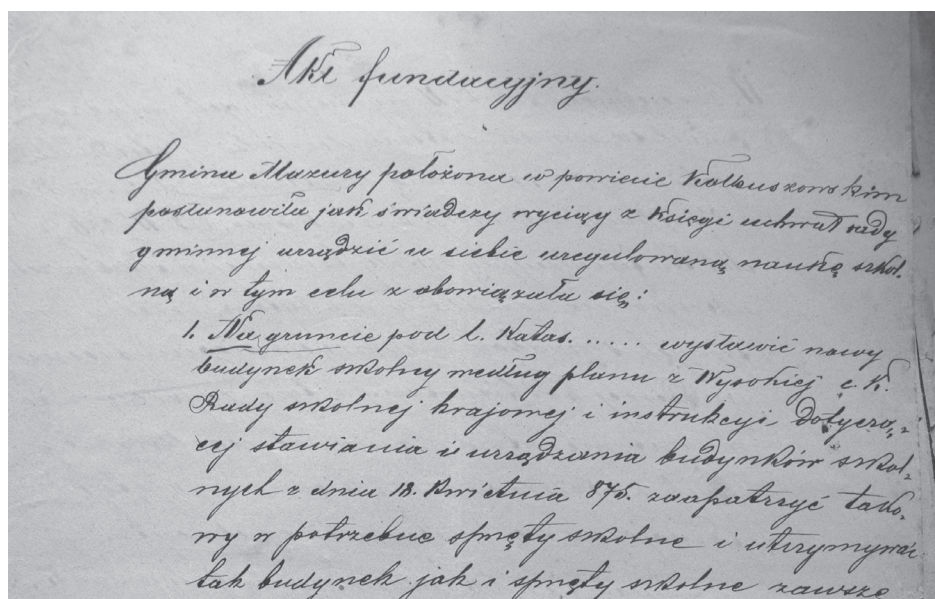 Akt fundacyjny.
Gmina Mazury położona w powiecie Kolbuszowskim
postanowiła jak świadczy wyciąg z księgi uchwał rady
gminnej urządzić u siebie uregulowaną naukę szkol-
ną i w tym celu zobowiązała się:
1. Na gruncie pod l. katas. ..... wystawić nowy
budynek szkolny według planu z Wysokiej c. k.
Rady szkolnej krajowej i instrukcyi dotyczą-
cej stawiania i urządzania budynków szkol-
nych z dnia 18. kwietnia 875. zaopatrzyć tako-
wy w potrzebne sprzęty szkolne i utrzymywać
tak budynek jak i sprzęty szkolne zawsze